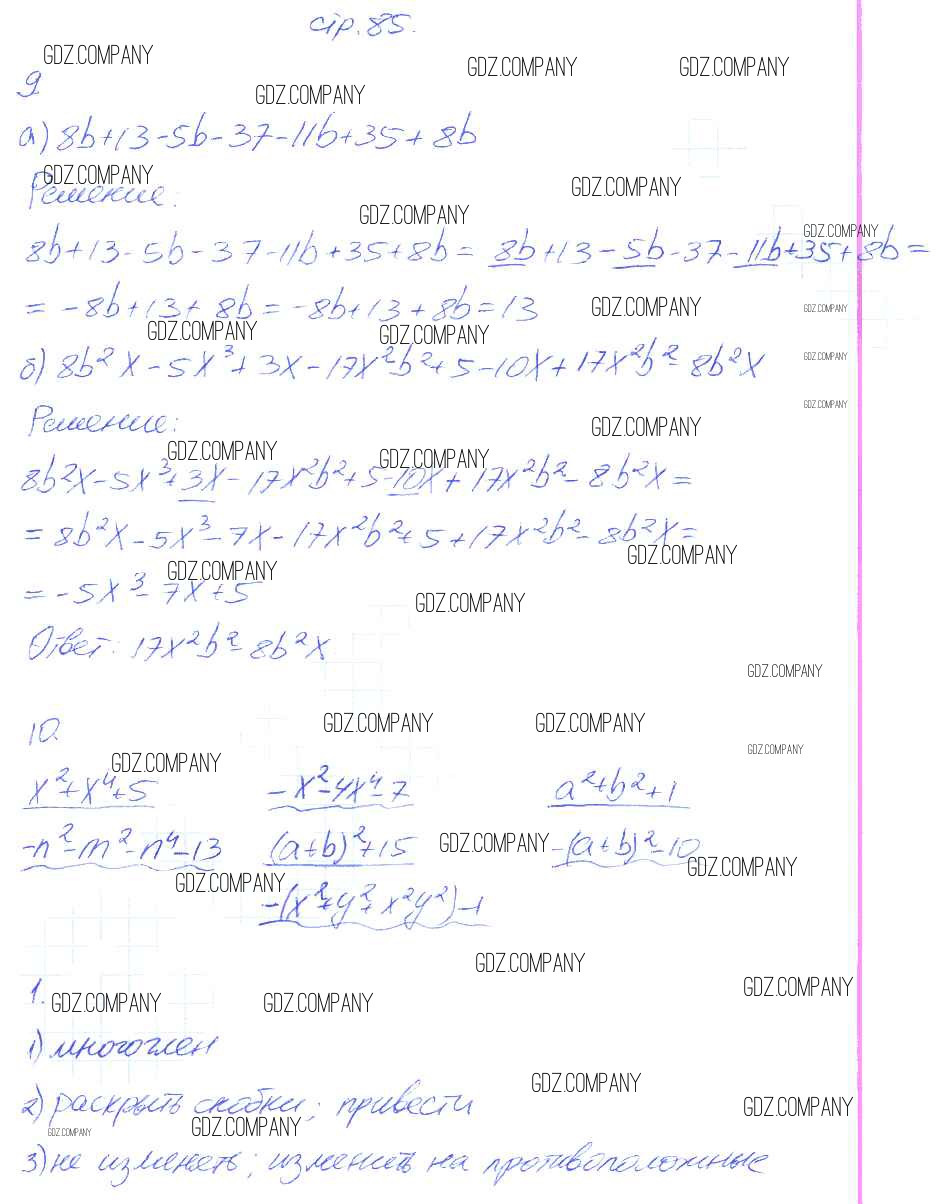 стр. 85.
GDZ.COMPANY
GDZ.COMPANY GDZ.COMPANY
9
GDZ.COMPANY
а) 8b+13-5b-37-11b+35+8b
GDZ.COMPANY
GDZ.COMPANY
Решение:
GDZ.COMPANY
GDZ.COMPANY
8b+13-5b-37-11b+35+8b= 8b+13-5b-37-11b+35+8b=
= -8b+13+8b=-8b+13+8b=13
GDZ.COMPANY GDZ.COMPANY
GDZ.COMPANY GDZ.COMPANY
GDZ.COMPANY
б) 8b²x-5x³+3x-17x²b²+5-10x+17x²b²-8b²x
GDZ.COMPANY
Решение:
GDZ.COMPANY
GDZ.COMPANY GDZ.COMPANY
8b²x-5x³+3x-17x²b²+5-10x+17x²b²-8b²x=
=8b²x-5x³-7x-17x²b²+5+17x²b²-8b²x=
GDZ.COMPANY
GDZ.COMPANY
=-5x³-7x+5
GDZ.COMPANY
Ответ: 17x²b²-8b²x
GDZ.COMPANY
10.
GDZ.COMPANY GDZ.COMPANY
GDZ.COMPANY
GDZ.COMPANY
x²+x⁴+5 -x²-4x⁴-7 a²+b²+1
-n²-m²-n⁴-13 (a+b)²+15 GDZ.COMPANY -(a+b)²-10
GDZ.COMPANY
GDZ.COMPANY
-(x²+y²+x²y²)-1
GDZ.COMPANY
GDZ.COMPANY
1.
GDZ.COMPANY GDZ.COMPANY
1) многочлен
GDZ.COMPANY
2) раскрыть скобки; привести
GDZ.COMPANY
GDZ.COMPANY GDZ.COMPANY
3) не изменять; изменить на противоположные